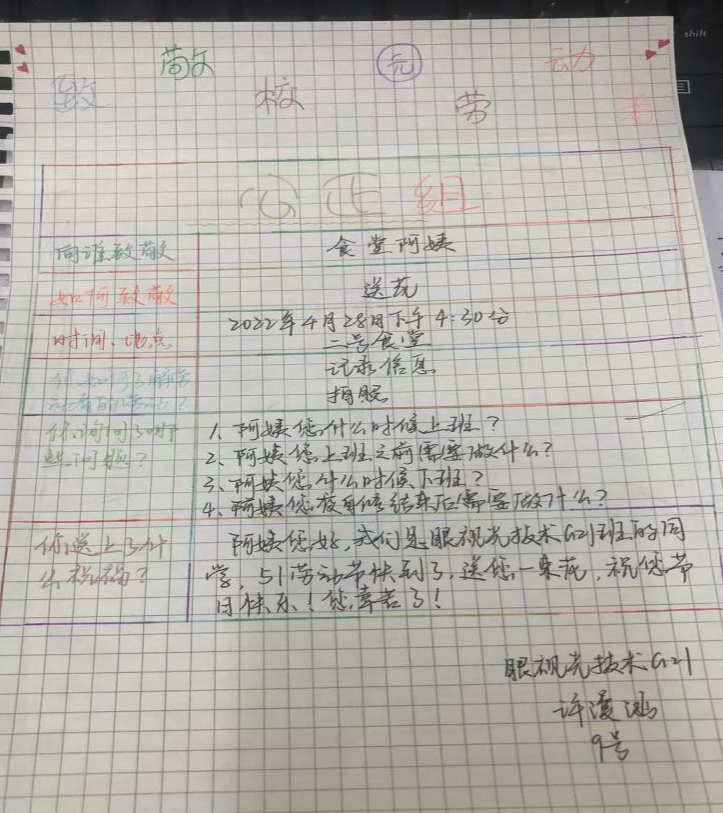 shift
致敬校园劳动者
心正组
向谁致敬 食堂阿姨
如何致敬 送花
时间、地点 2022年4月28日下午4:30分
二号食堂
你如何了解劳 记录信息
动者的 拍照
你询问了哪 1、阿姨您什么时候上班?
些问题? 2、阿姨您上班之前需要做什么?
3、阿姨您什么时候下班?
4、阿姨您夜自修结束后需要做什么?
你送上了什 阿姨您好,我们是眼视光技术G21班的同
么祝福? 学,51劳动节快到了,送您一束花,祝您节
日快乐!您辛苦了!
眼视光技术G21
许漫鸿
9号